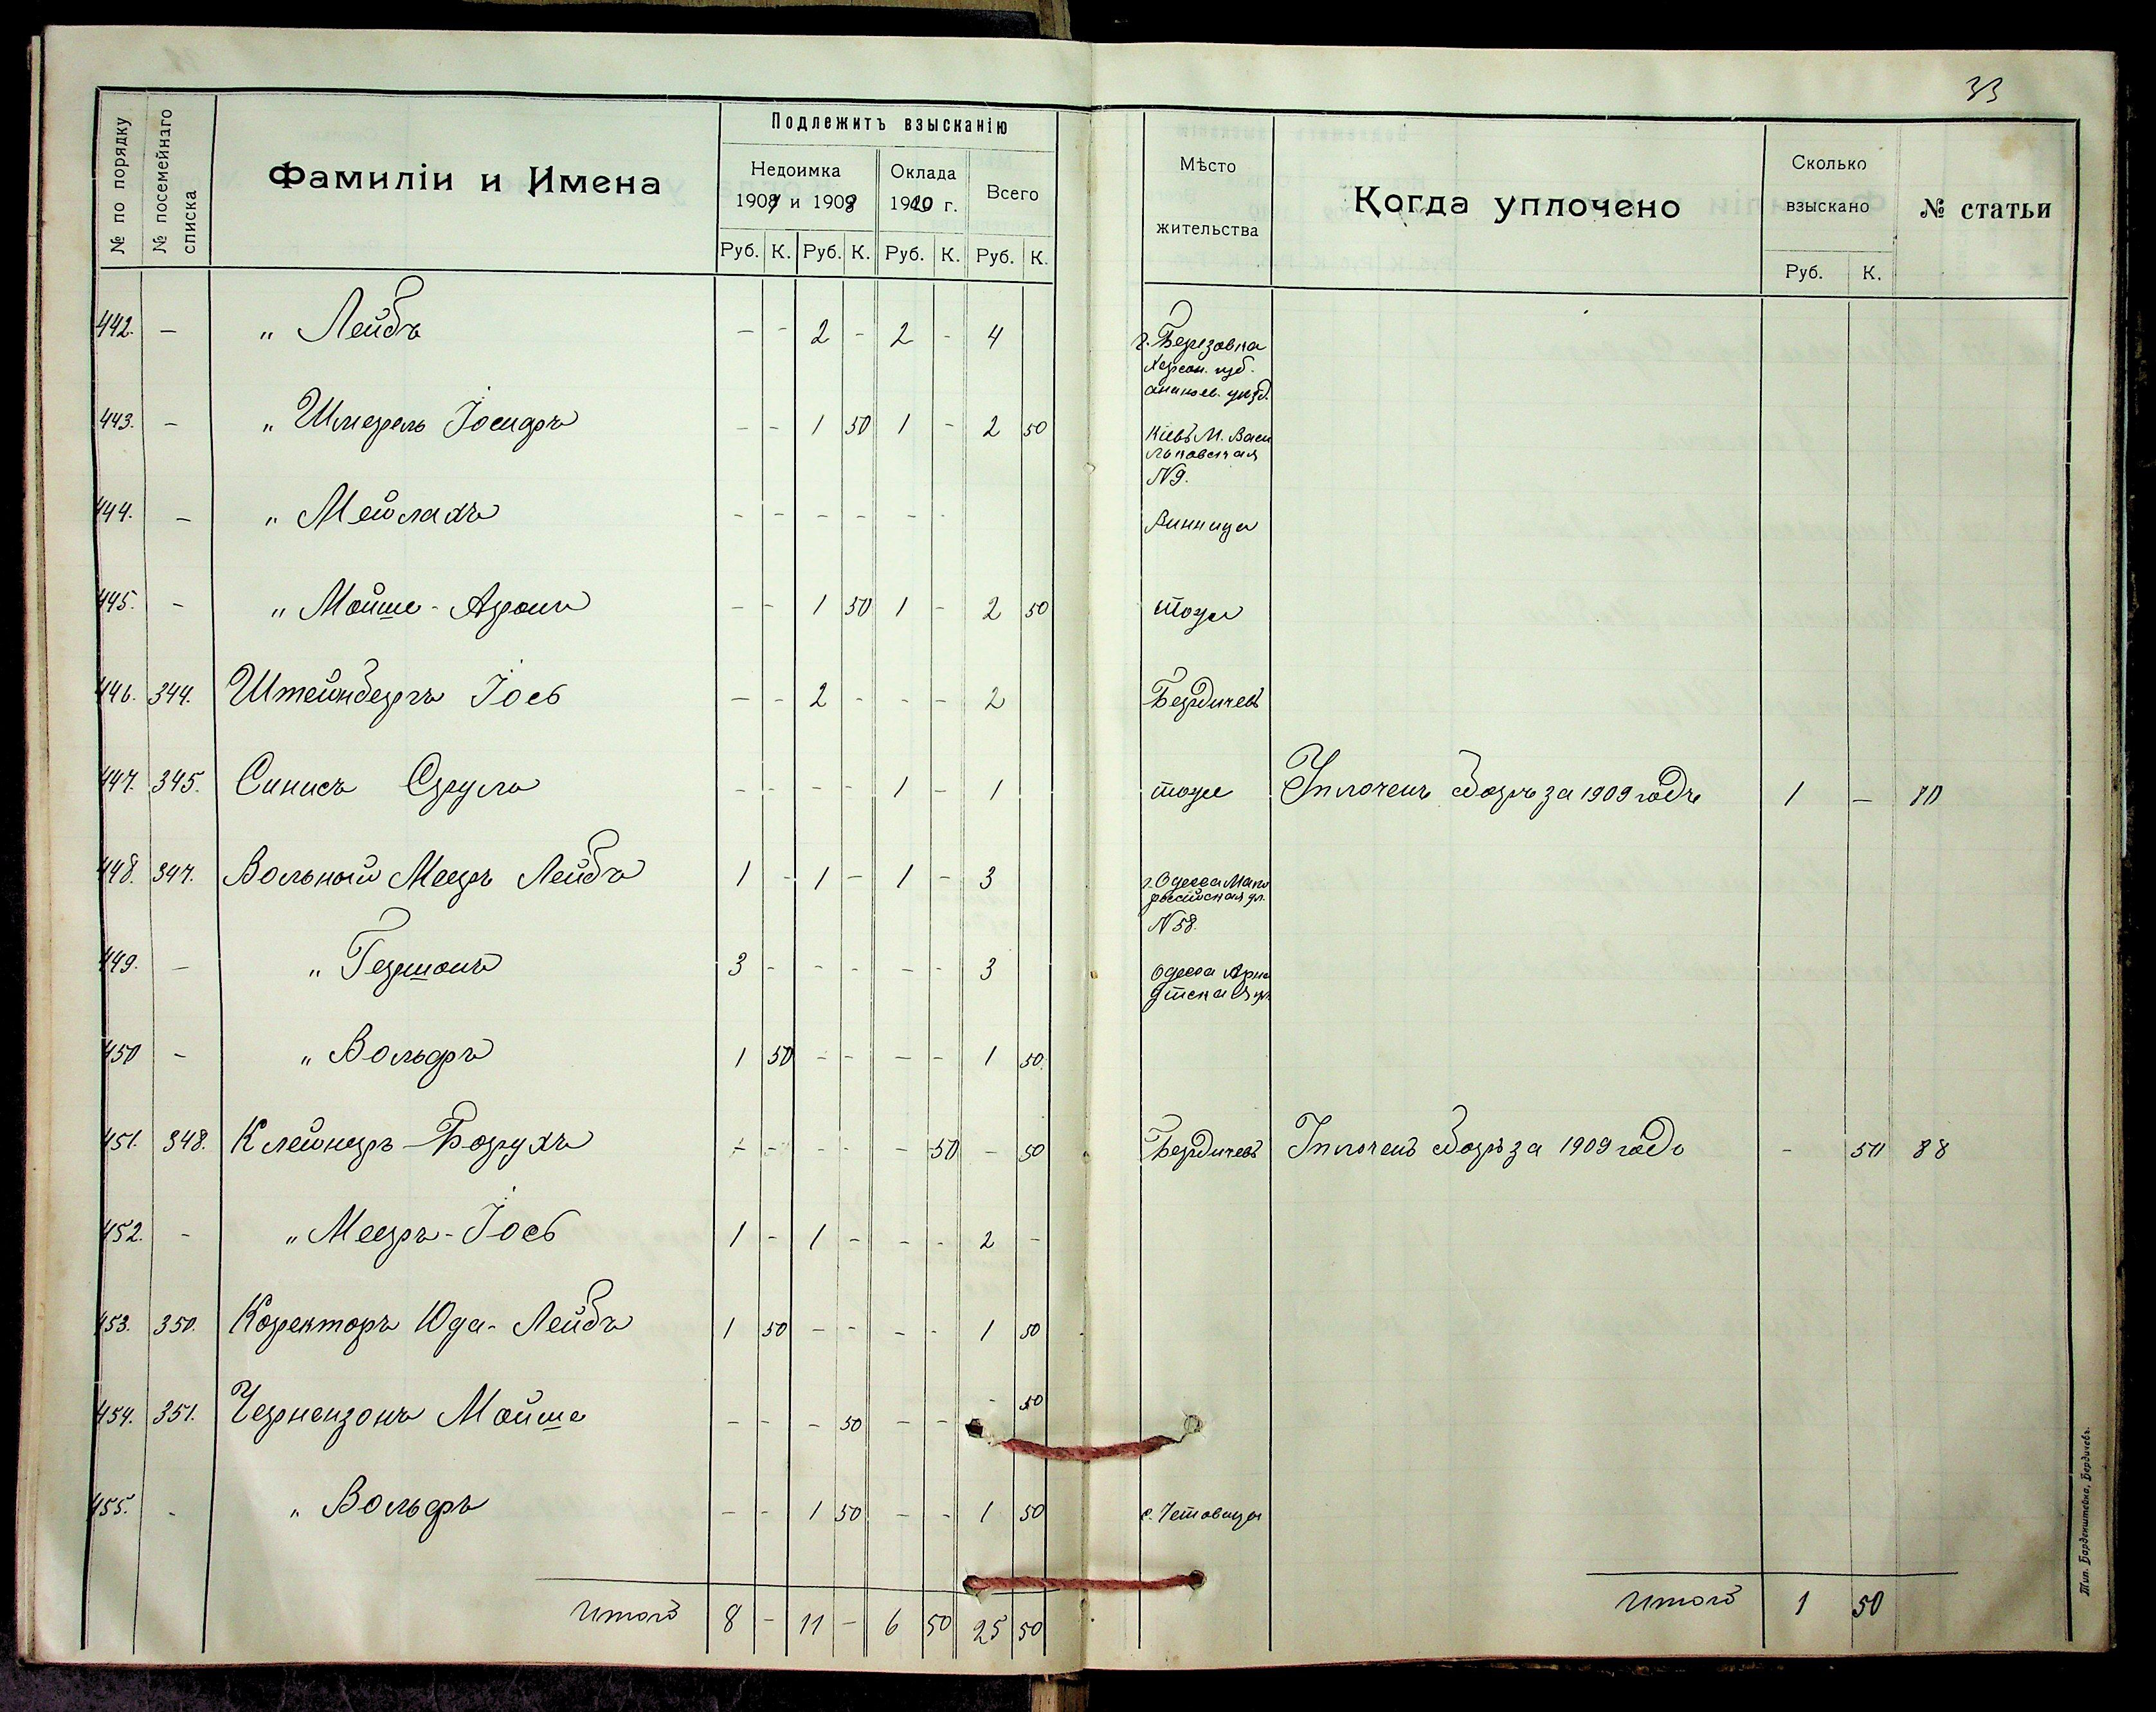 33
№ по порядку
№ посемейнаго списка
Фамиліи и Имена
Подлежитъ взысканію
Недоимка
1908 и 1909
Оклада
1910 г.
Всего
Руб. К. Руб. К. Руб. К. Руб. К.
Мѣсто
жительства
Когда уплочено
Сколько
взыскано
Руб. К.
№ статьи
442. – „ Лейбъ – – 2 – 2 – 4 г. Березовка
Херсон. губ.
ананьев. уѣзд.
443. – „ Шмерель Іосифъ – – 1 50 1 – 2 50 Кіевъ М. Васи
льковская
N 9.
444. – „ Мейлахъ – – – – – – Винница
445. – „ Мойше-Аронъ – – 1 50 1 – 2 50 тоже
446. 344. Штейнбергъ Іось – – 2 – – – 2 Бердичевъ
447. 345. Синисъ Сруль – – – – 1 – 1 тоже Уплоченъ сборъ за 1909 годъ 1 – 80
448. 347. Вольный Мееръ Лейбъ 1 – 1 – 1 – 3 г. Одесса Мало
россійская ул.
N 58.
449. – „ Гершонъ 3 – – – – – 3 Одесса
450 – „ Вольфъ 1 50 – – – – 1 50.
451. 348. Клейнеръ-Борухъ – – – – – 50 – 50 Бердичевъ Уплоченъ сборъ за 1909 годъ – 50 88
452. – „ Мееръ-Іось 1 – 1 – – – 2 –
453. 350. Коректоръ Юда-Лейбъ 1 50 – – – – 1 50
454. 351. Чернензонъ Мойше – – – 50 – – – 50
455. – „ Вольфъ – – 1 50 – – 1 50 с.
Итого 8 – 11 – 6 50 25 50
Итого 1 50
Тип. Барденштейна, Бердичевъ.